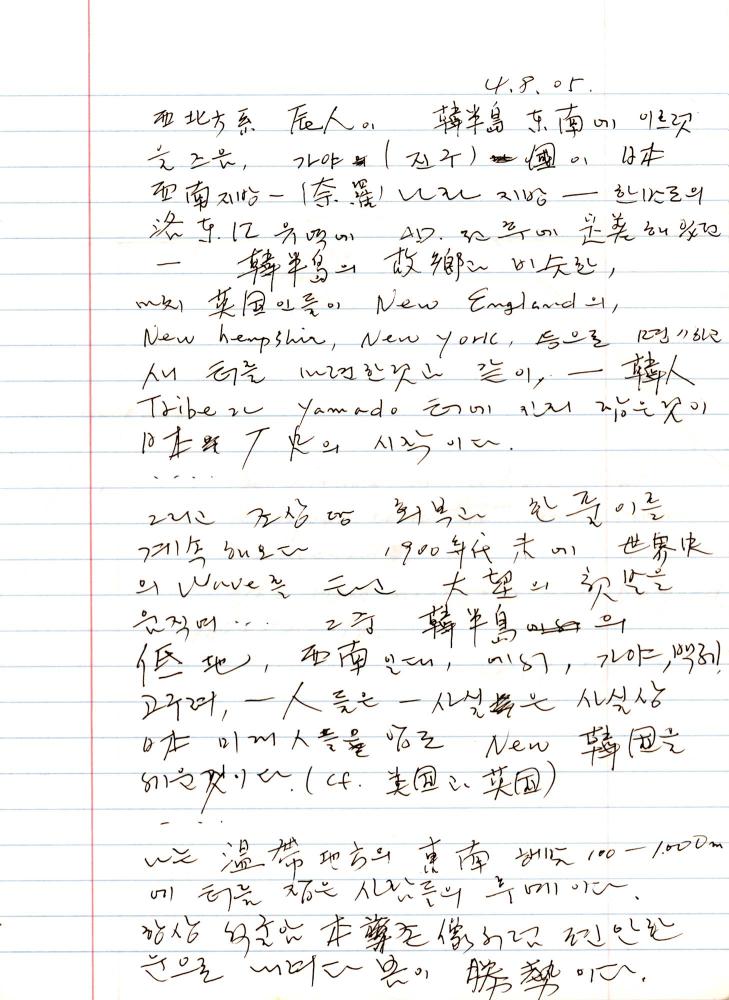 4. 8. 05.
西北方系 辰人이 韓半島 东南에 이르렀
을 즈음, 가야 (진주) 國이 日本
西南지방 - (奈羅) 나라 지방 - 한반도의
洛东江 유역에 AD. 전후에
- 韓半島의 故鄕과 비슷한,
마치 英国인들이 New England의,
New hempshir, New york, 등으로 하고
새 터를 마련한것과 같이, - 韓人
Tribe과 Yamado 터에 먼저 잡은것이
日本 历史의 시작이다.
. . . .
그리고 조상 땅 회복과 한풀이를
계속해오다 1900年代 末에 世界史
의 Wave를 타고 大望의 첫발을
움직며 ... 그중 韓半島 의
低地, 西南일대, 가야, 백제,
고구려, 一人들은 - 사실은 사실상
日本 미개人들을 앞으로 New 韓国을
세운것이다. (cf. 美国과 英国)
- . . .
나는 温帶地方의 東南 해발 100 - 1,000m
에 터를 잡은 사람들의 후예이다.
항상 석굴암 本尊 像처럼 편안한
눈으로 내려다 봄이 勝勢이다.